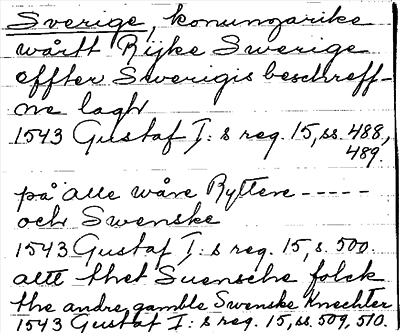 Sverige, konungarike
wårtt Rijke Swerige
effter Swerigis beschreff-
ne lagh
1543 Gustaf I: s reg. 15, ss. 488,
489.
på alle wåre Rytten - - - - -
och Swenske
1543 Gustaf I: s reg. 15, s. 500.
altt thet Suensche folck
the andre gamble Swenske Knechter
1543 Gustaf I: s reg. 15, ss. 509, 510.